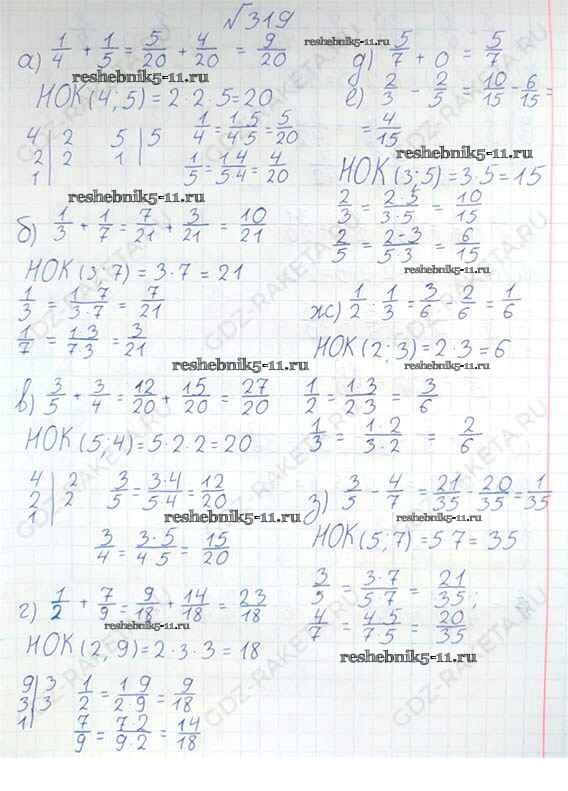 №319
а) 1/4 + 1/5 = 5/20 + 4/20 = 9/20
reshebnik5-11.ru
НОК(4;5) = 2·2·5 = 20
4 | 2 5 | 5 1/4 = 1·5/4·5 = 5/20
2 | 2 1 | 1/5 = 1·4/5·4 = 4/20
1 |
reshebnik5-11.ru
б) 1/3 + 1/7 = 7/21 + 3/21 = 10/21
НОК(3;7) = 3·7 = 21
1/3 = 1·7/3·7 = 7/21
1/7 = 1·3/7·3 = 3/21
reshebnik5-11.ru
в) 3/5 + 3/4 = 12/20 + 15/20 = 27/20
НОК(5;4) = 5·2·2 = 20
4 | 2 3/5 = 3·4/5·4 = 12/20
2 | 2
1 |
reshebnik5-11.ru
3/4 = 3·5/4·5 = 15/20
г) 1/2 + 7/9 = 9/18 + 14/18 = 23/18
reshebnik5-11.ru
НОК(2,9) = 2·3·3 = 18
9 | 3 1/2 = 1·9/2·9 = 9/18
3 | 3
1 | 7/9 = 7·2/9·2 = 14/18
reshebnik5-11.ru
д) 5/7 + 0 = 5/7
е) 2/3 - 2/5 = 10/15 - 6/15 =
= 4/15
НОК(3;5) = 3·5 = 15
2/3 = 2·5/3·5 = 10/15
2/5 = 2·3/5·3 = 6/15
reshebnik5-11.ru
ж) 1/2 - 1/3 = 3/6 - 2/6 = 1/6
НОК(2;3) = 2·3 = 6
reshebnik5-11.ru
1/2 = 1·3/2·3 = 3/6
1/3 = 1·2/3·2 = 2/6
з) 3/5 - 4/7 = 21/35 - 20/35 = 1/35
reshebnik5-11.ru
НОК(5;7) = 5·7 = 35
3/5 = 3·7/5·7 = 21/35;
4/7 = 4·5/7·5 = 20/35
reshebnik5-11.ru
GDZ-RAKETA.RU